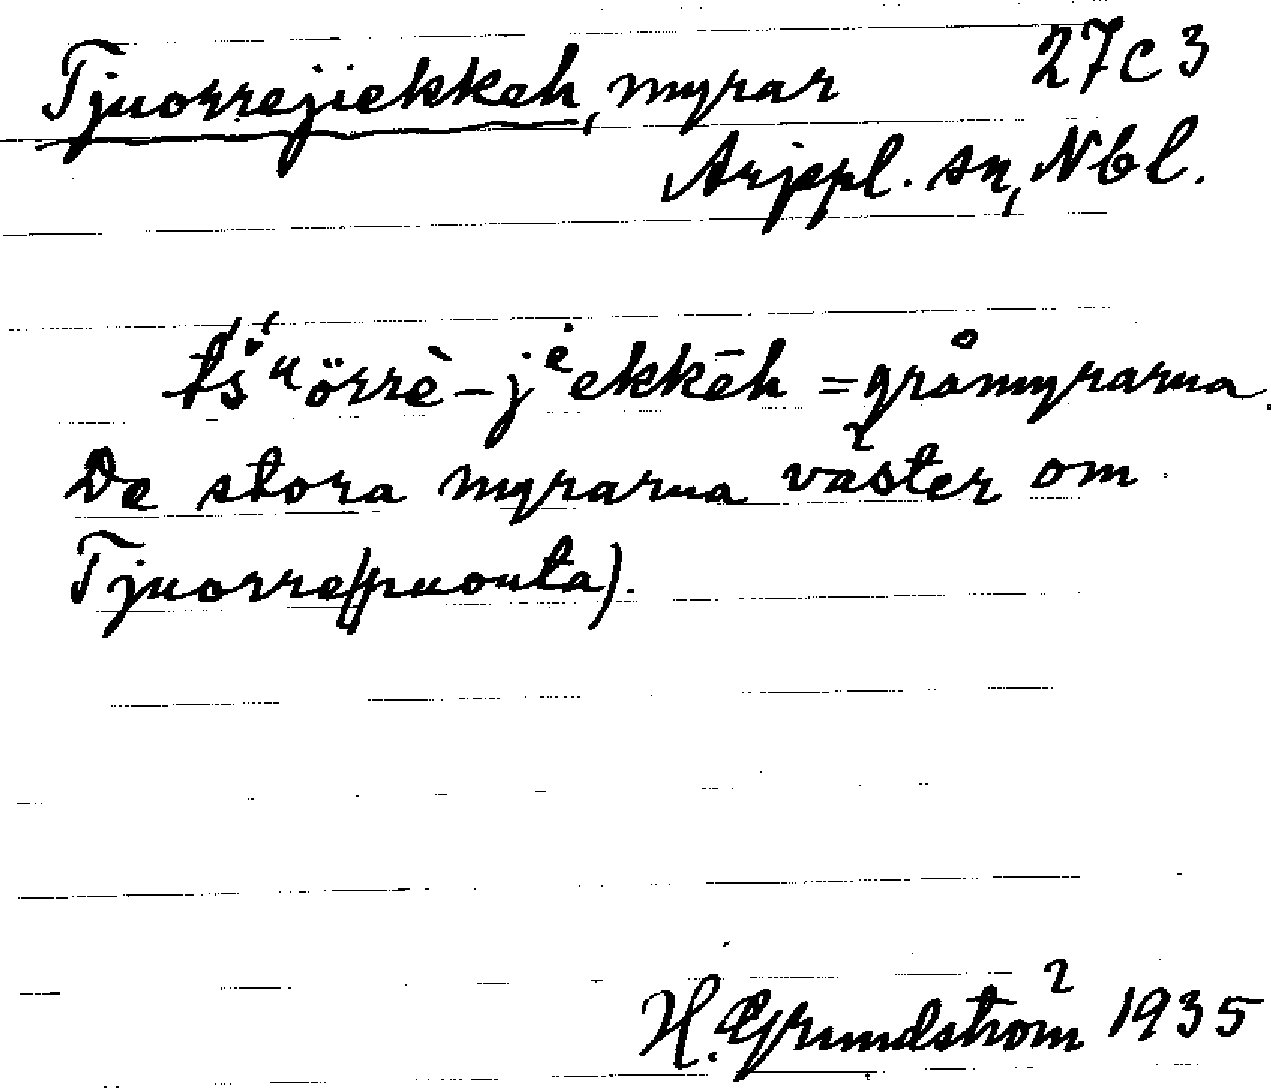 Tjuorrejiekkeh, myrar 27C3
Arjeppl. sn, Nbl.
tš́ᵘörrè-jᵉ̇ekkēh = gråmyrarna.
De stora myrarna väster om
Tjuorre(puouta).
H. Grundström 1935